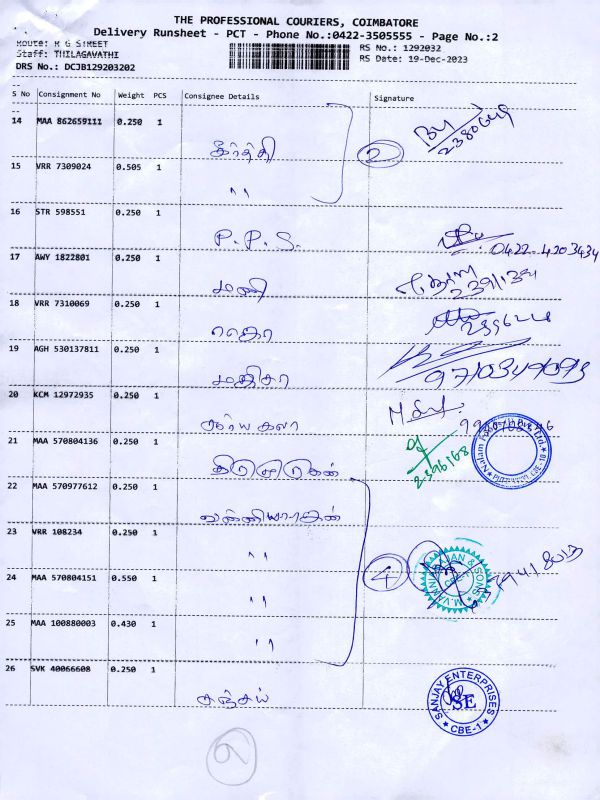 THE PROFESSIONAL COURIERS, COIMBATORE
Delivery Runsheet - PCT - Phone No.:0422-3505555 - Page No.:2
Route: R G STREET
Staff: THILAGAVATHI
DRS No.: DCJB129203202
RS No.: 1292032
RS Date: 19-Dec-2023
S No Consignment No Weight PCS Consignee Details Signature
14 MAA 862659111 0.250 1 கீர்த்தி
2
15 VRR 7309024 0.505 1 "
16 STR 598551 0.250 1 P.P.S. 0422-4203434
17 AWY 1822801 0.250 1 மணி
18 VRR 7310069 0.250 1
19 AGH 530137811 0.250 1 9710349093
20 KCM 12972935 0.250 1 சூர்யகலா
21 MAA 570804136 0.250 1 திருமுருகன் 2396168
22 MAA 570977612 0.250 1 வன்னியராஜன்
23 VRR 108234 0.250 1 "
4
24 MAA 570804151 0.550 1 "
25 MAA 100880003 0.430 1 "
26 SVK 40066608 0.250 1 சஞ்சய்
SANJAY ENTERPRISES
SE
CBE-1